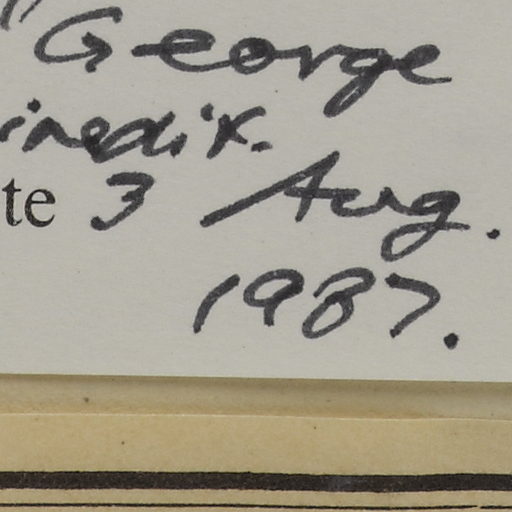 George
inedix.
te 3 Aug.
1987.